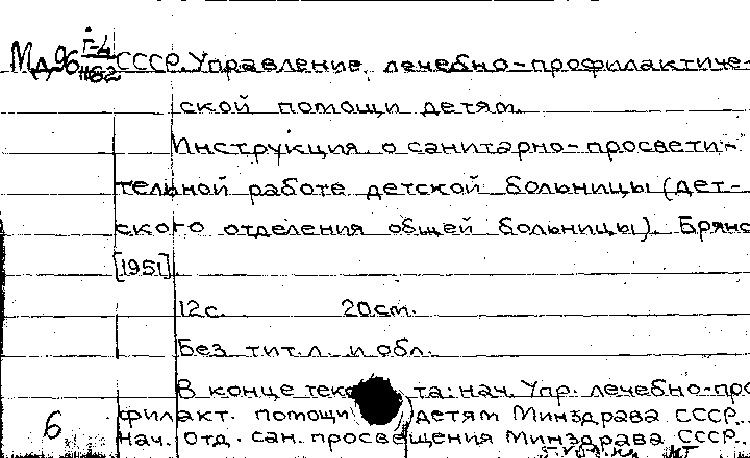 Мд96 Г-4/1182 СССР. Управление лечебно-профилактиче-
ской помощи детям.
Инструкция о санитарно-просвети-
тельной работе детской больницы (дет-
ского отделения общей больницы). Брянс
[1951].
12с. 20см.
Без тит.л. и обл.
В конце текста: нач. Упр. лечебно-про
филакт. помощи детям Минздрава СССР...
6 нач. отд. сан. просвещения Минздрава СССР...